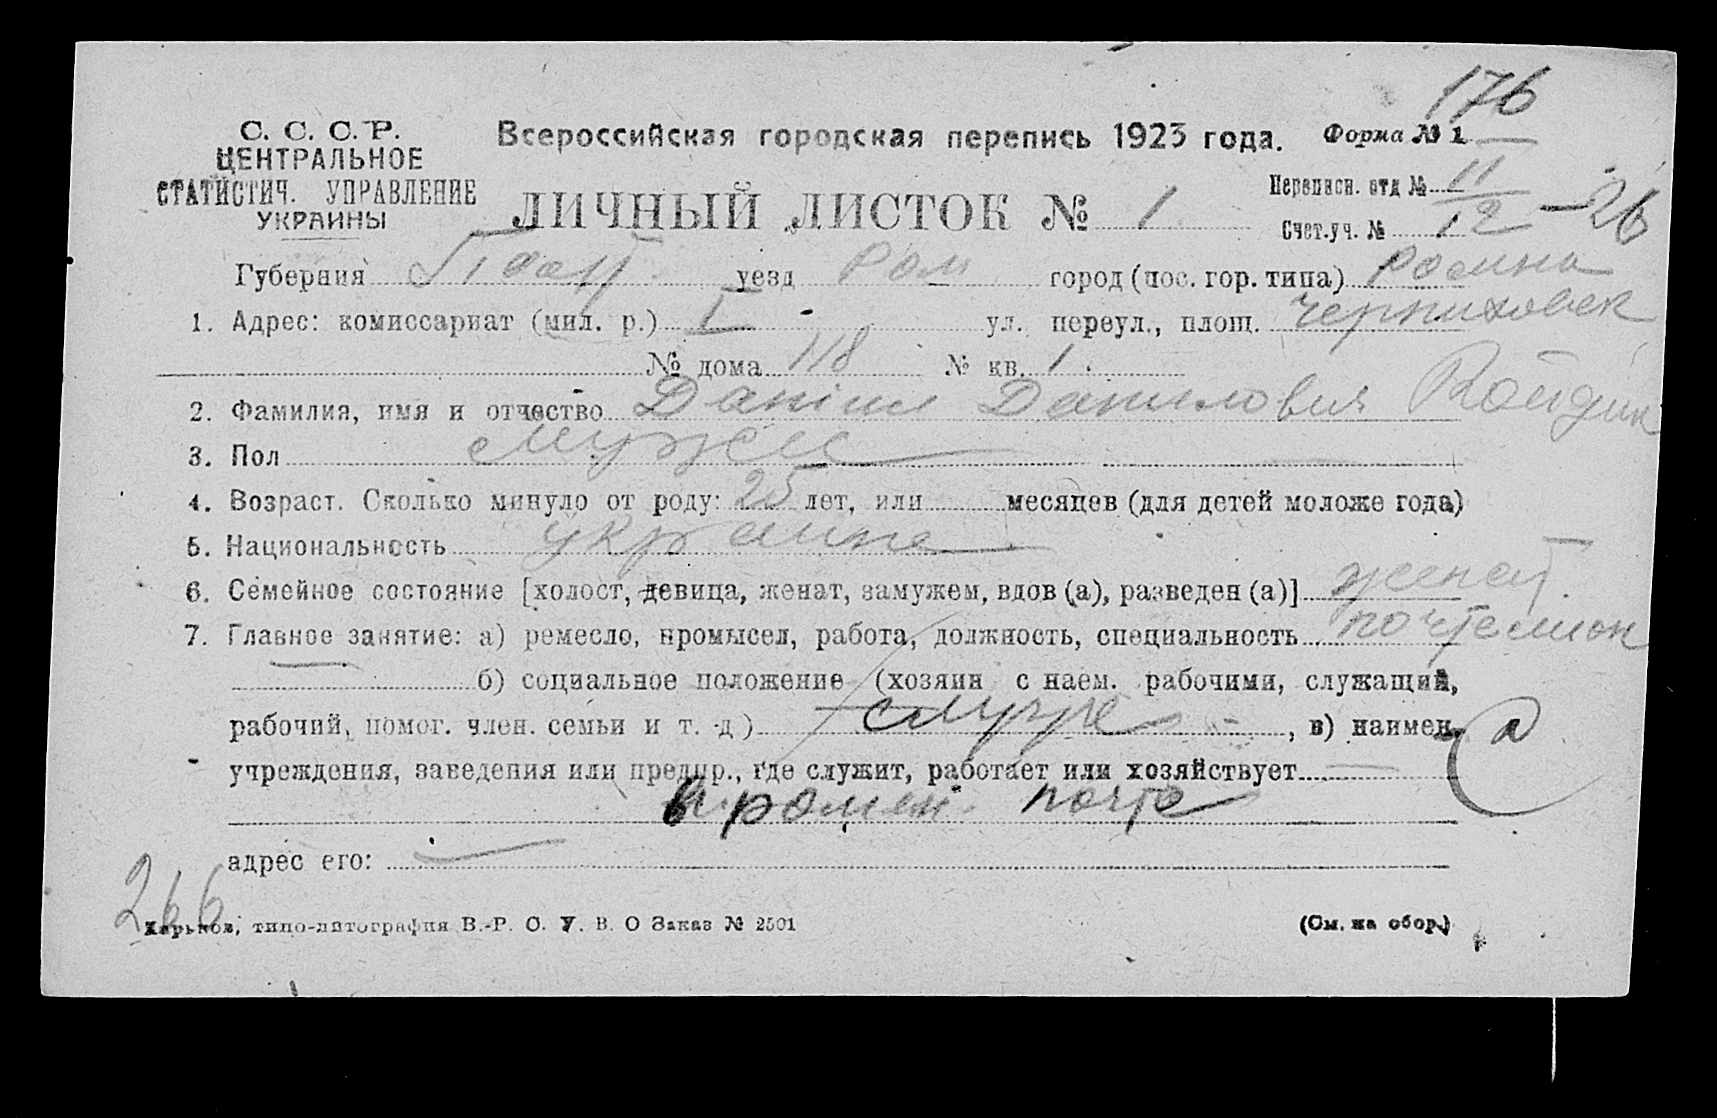 176
С. С. С. Р.
ЦЕНТРАЛЬНОЕ
СТАТИСТИЧ. УПРАВЛЕНИЕ
УКРАИНЫ
Всероссийская городская перепись 1923 года. Форма № 1
ЛИЧНЫЙ ЛИСТОК № 1
Переписн. отд № 11
Счет.уч. № 12 – 26
Губерния Полт уезд Ром город (пос. гор. типа)
1. Адрес: комиссариат (мил. р.) I ул. переул., площ. Черниховск
№ дома 118 № кв. 1
2. Фамилия, имя и отчество Даніил Данилович
3. Пол мужск
4. Возраст. Сколько минуло от роду: 25 лет, или месяцев (для детей моложе года)
5. Национальность украине
6. Семейное состояние [холост, девица, женат, замужем, вдов (а), разведен (а)] женат
7. Главное занятие: а) ремесло, промысел, работа, должность, специальность почталион
б) социальное положение (хозяин с наем. рабочими, служащий,
рабочий, помог. член. семьи и т. д) служе , в) наимен.
учреждения, заведения или предпр., где служит, работает или хозяйствует
в ромен. почте
адрес его:
266
Харьков, типо-литография В.-Р. С. У. В. О Заказ № 2501 (См. на обор.)